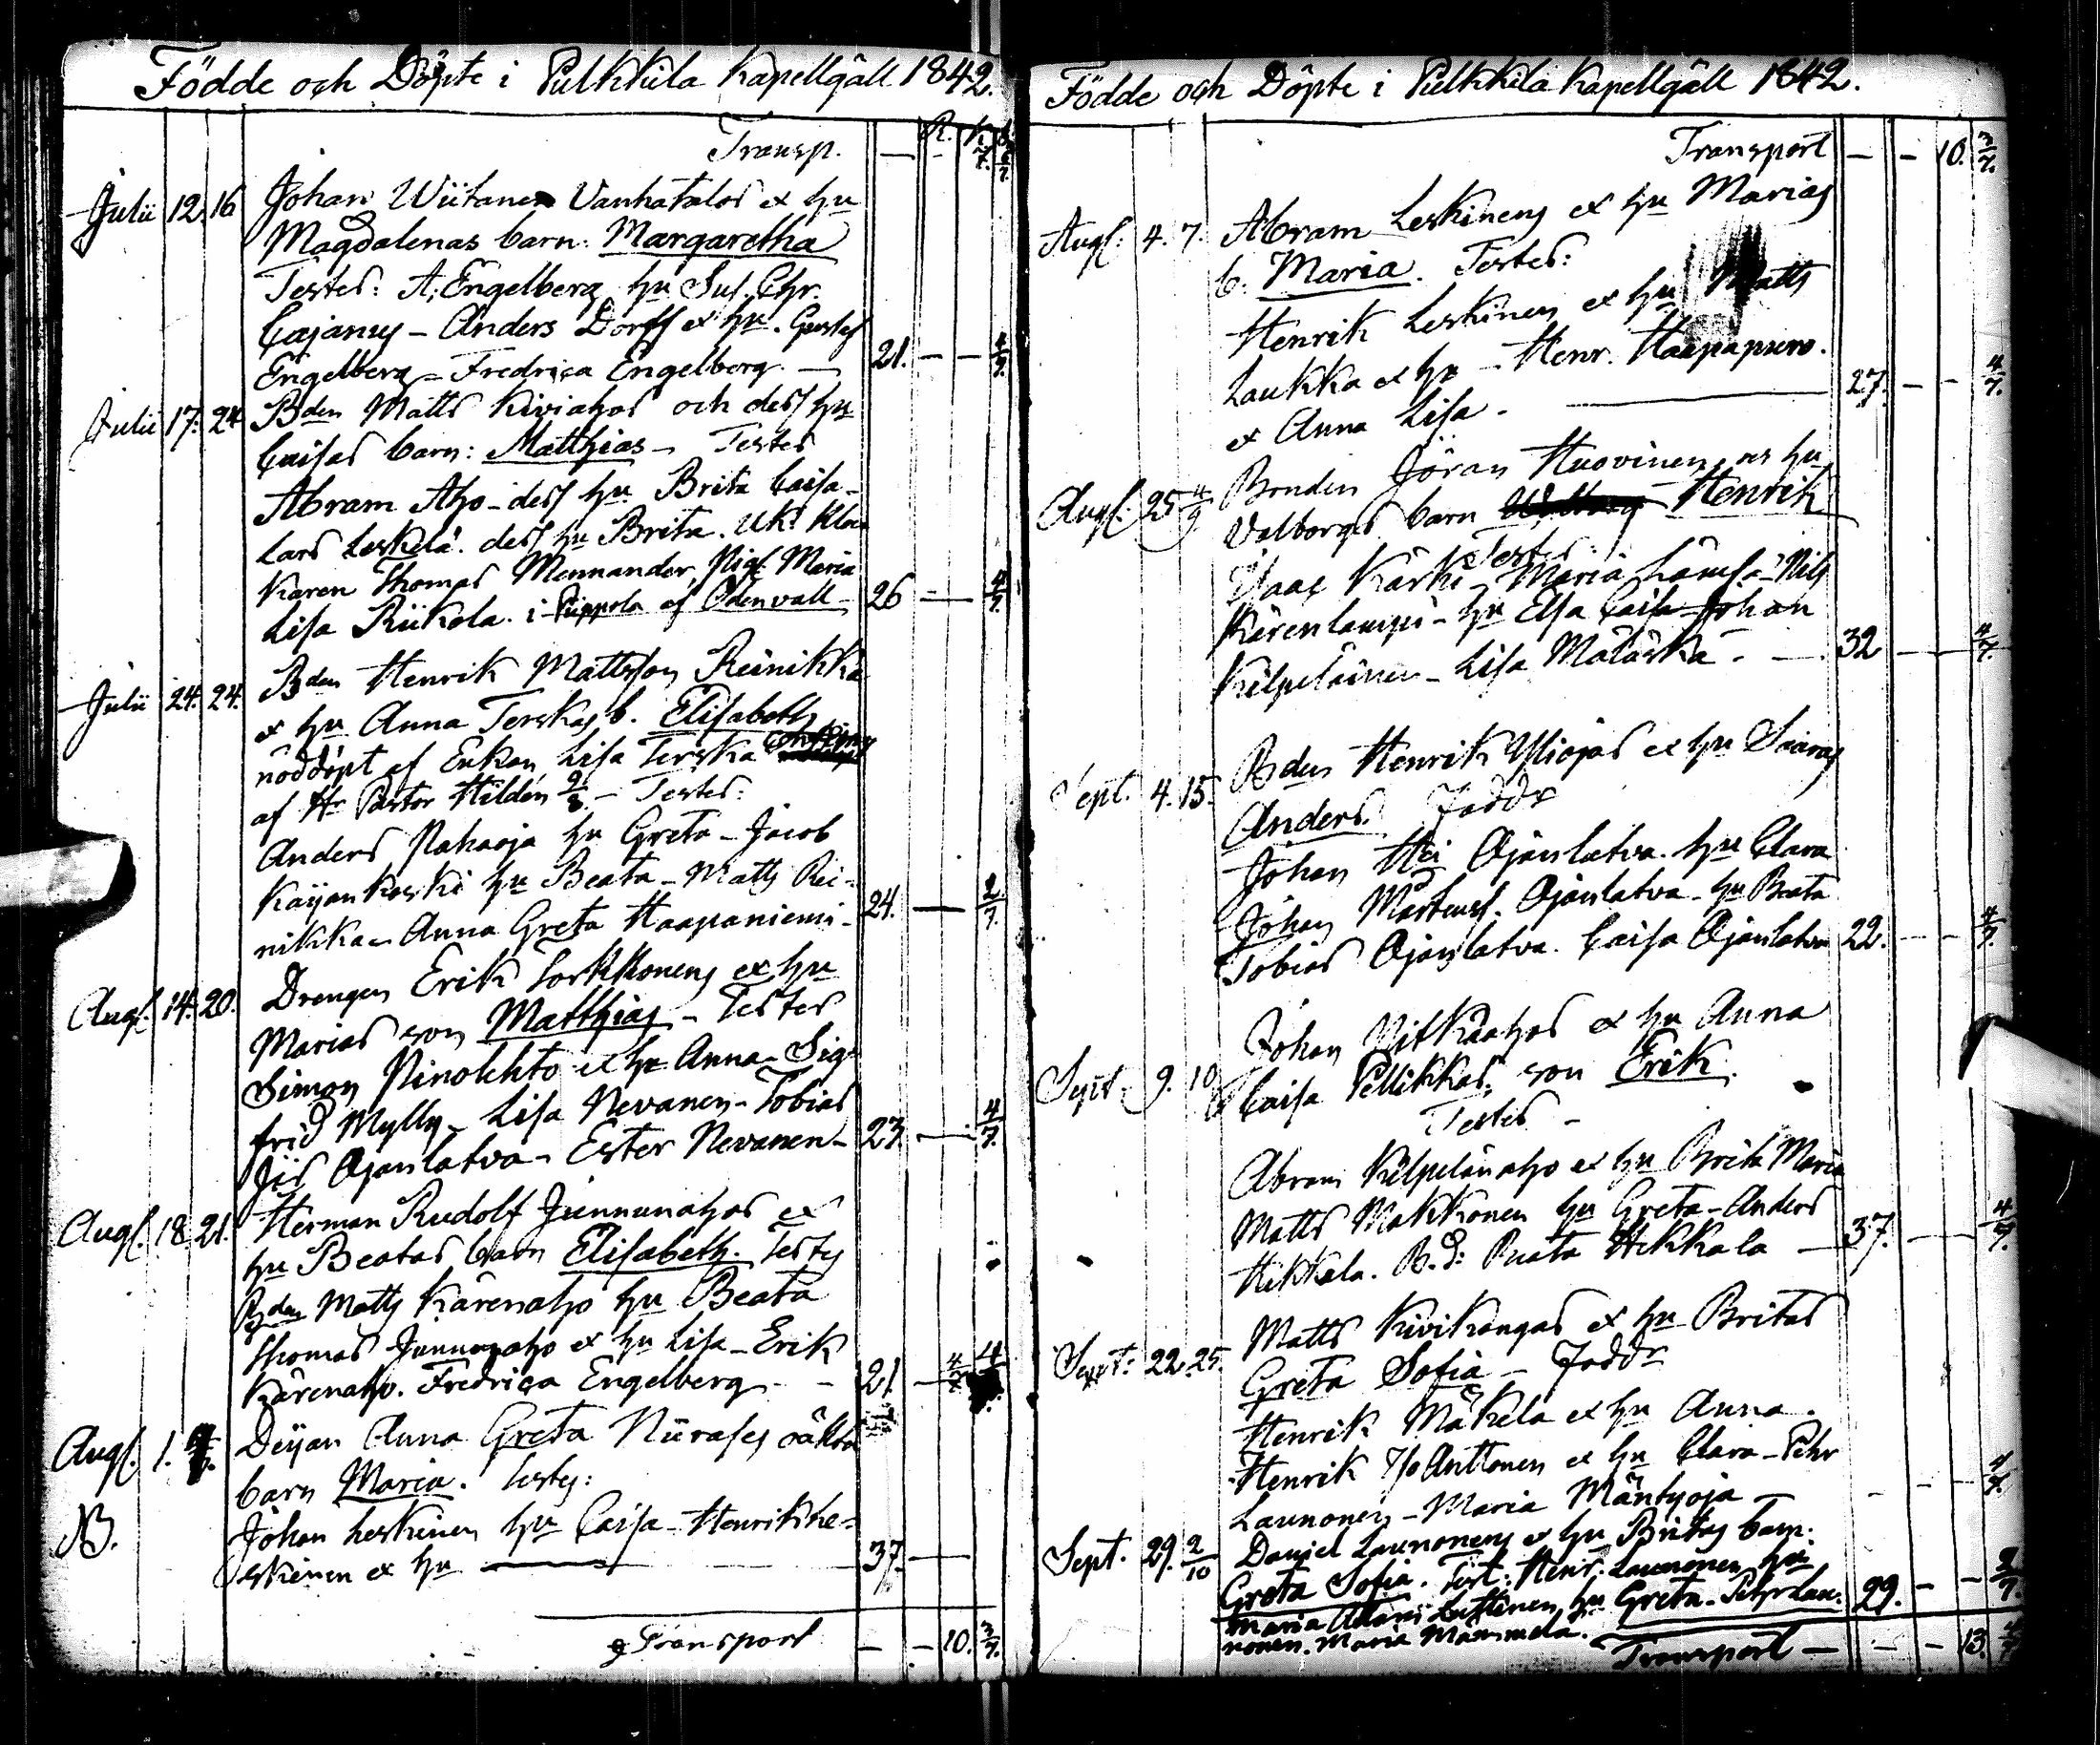 Födde och Döpte i Pulkkila Kapellgäll 1842.
Transp. — - R. K.
Julii 12. 16 Johan Wiitanen Vanhatalos et hu
Magdalenas barn: Margaretha
Testes: A. Engelberg hu Sus. Chr.
Cajanus - Anders Dorff et hu. Gustaf
Engelberg - Fredrica Engelberg. — 21. — — 4/7.
Julii 17. 24 Bden Matts Kiviahos och dess hu
Caisas barn: Matthias - Testes
Abram Aho - dess hu Brita Caisa -
Lars Leskelä. dess hu Brita. Uk. Kloc
karen Thomas Mennander, Pig. Maria
Lisa Riikola. i Piippola af Ödenvall - 26 — 4/7.
Julii 24. 24. Bden Henrik Mattsson Reinikka
et hu Anna Terskas b. Elisabeth
nöddöpt af Enkan Lisa Terska
af Hr Pastor Hildén 9/8. - Testes:
Anders Nahaoja hu Greta - Jacob
Käyänkoski hu Beata - Matts Rei-
nikka - Anna Greta Haapaniemi - 24. — 2/7.
Aug. 14. 20. Drengen Erik Torkkonens et hu
Marias son Matthias - Testes
Simon Ninolehto et hu Anna - Sig-
frid Mylly - Lisa Nevanen - Tobias
Ojanlatva - Ester Nevanen - 23. — 4/7.
Aug. 18. 21. Herman Rudolf Junnunahos et
hu Beatas barn Elisabeth. Testes
Bden Matts Kärenaho hu Beata
Thomas Junnunaho et hu Lisa - Erik
Kärenaho. Fredrica Engelberg - - 21. —
Aug. 1. Deijan Anna Greta Niirases oäkta
barn Maria. Testes:
Johan Leskinen hu Caisa - Henrik Le-
skinen et hu — 37. —
Transport — - 10. 3/7.
Födde och Döpte i Pulkkila Kapellgäll 1842.
Transport — - 10. 3/7.
Aug: 4. 7. Abram Leskinens et hu Marias
b. Maria. Testes:
Henrik Leskinen et hu Matts
Laukka et hu - Henr. Haapapuro.
et Anna Lisa - — 27. — - 4/7.
Aug. 25 4/9 Bonden Jöran Huovinen, os hu
Valborgs barn Henrik
Testes
Isaac Kärki - Maria Lämsä - Nils
Kärenlampi - hu Elsa Caisa - Johan
Kilpeläinen - Lisa Mälaskä - — 32 — 4/7.
Sept. 4. 15. Bden Henrik Yliojas et hu Saaras
Anders. Faddr
Johan Hri Ojanlatva. hu Clara
Johan Mårtens. Ojanlatva - hu Beata
Tobias Ojanlatva. Caisa Ojanlatva 22. — - 4/7.
Sept. 9. 10 Johan Pitkäahos et hu Anna
Caisa Pellikkas, son Erik.
Testes -
Abram Kilpelänaho et hu Brita Maria
Matts Makkonen hu Greta - Anders
Hikkala. B.d: Beata Hikkala — 37. — 4/7.
Sept: 22. 25. Matts Kivikangas et hu Britas
Greta Sofia - Faddr
Henrik Mäkelä et hu Anna.
Henrik Anttonen et hu Clara - Pehr
Launonen - Maria Mäntyoja — - - - 4/7.
Sept. 29. 2/10 Daniel Launonens et hu Britas barn.
Greta Sofia. Test: Henr. Launonen, hu
Maria Adam Luttinen, hu Greta - Pehr Lau- 29. — - 2/7.
nonen. Maria
Transport — - - 13.